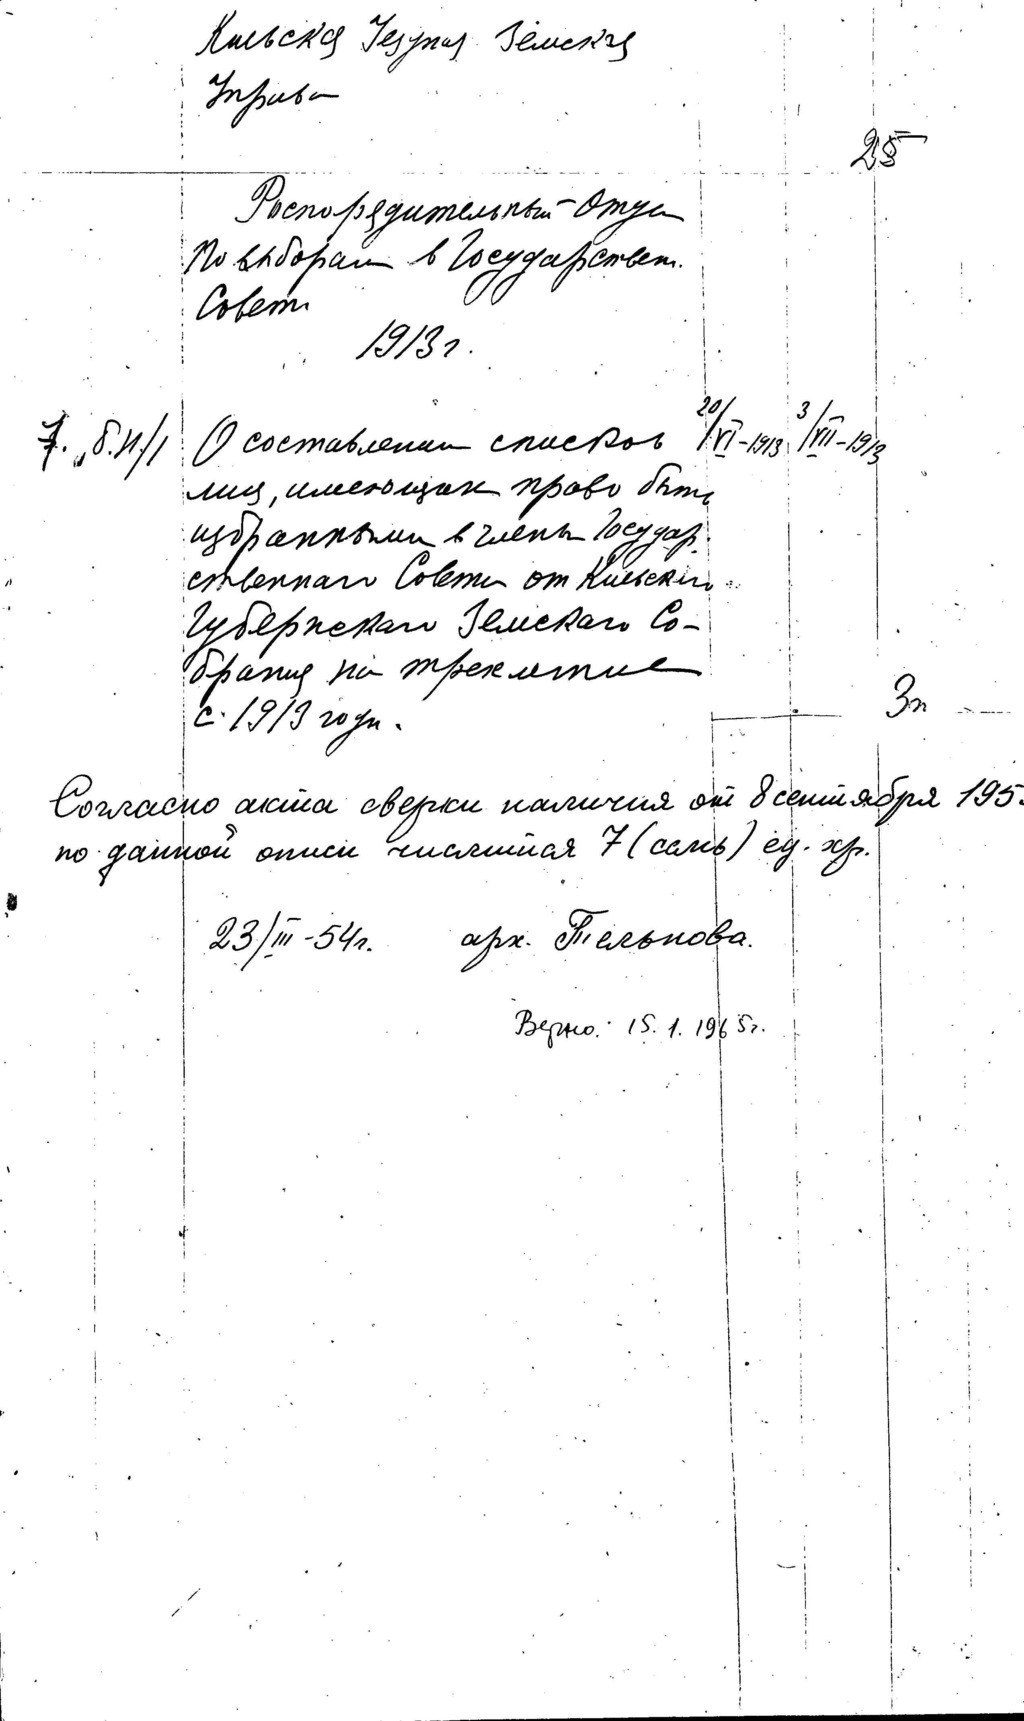 Киевская Уездная Земская
Управа
25
Распорядительный Отдел
По выборам в Государствен.
Совет
1913 г.
7. „б.н/1 О составлении списков 20/VI-1913 3/VII-1913
лиц, имеющих право быть
избранными в члены Государ-
ственнаго Совета от Киевскаго
Губернскаго Земскаго Со-
брания на трехлетие
с 1913 года.
Согласно акта сверки наличия от 8 сентября 195
по данной описи числится 7 (семь) ед. хр.
23/III-54г. арх. Тельнова.
Верно: 15.1.1965г.